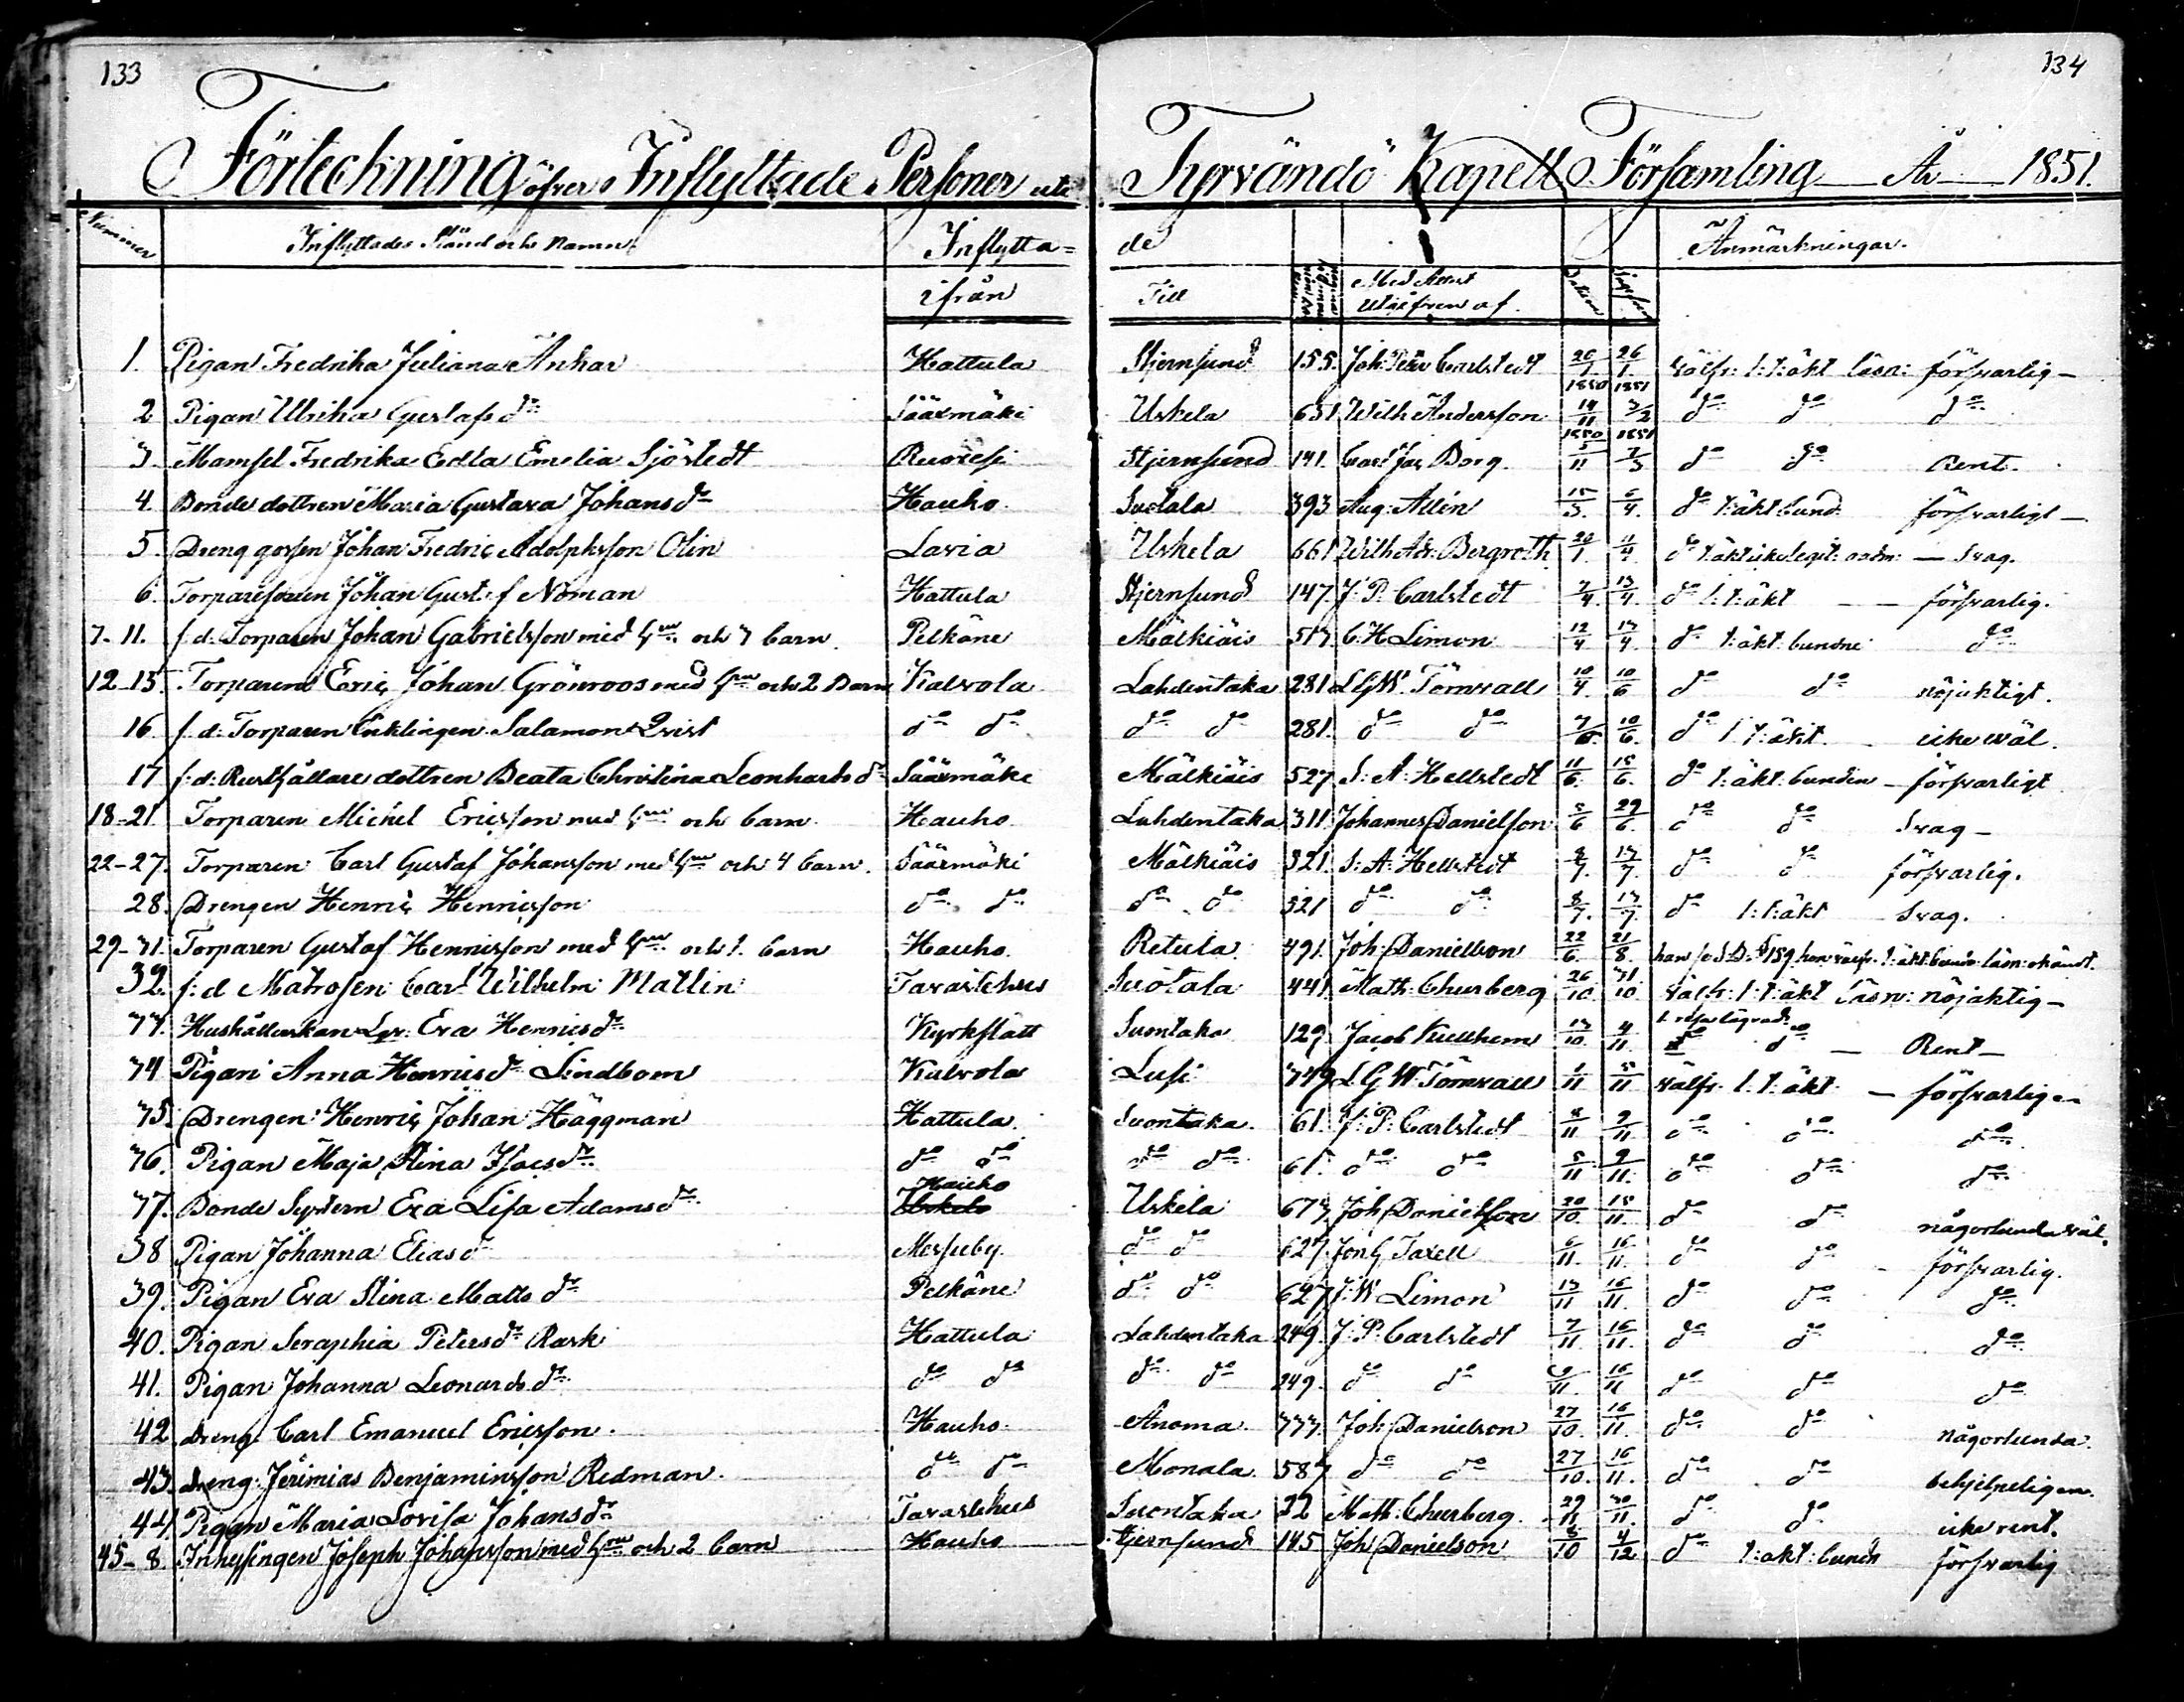 133
134
Förteckning öfver Inflyttade Personer uti Tyrvändö Kapell Församling År 1851.
Nummer Inflyttades Stånd och Namn. Inflytta= de Anmärkningar.
ifrån Till Med Attest Utgifven af. Datum
1. Pigan Fredrika Juliana Ankar Hattula Stjernsund 155. Joh: Petter Carlstedt 20/1. 26/1. välfr: l: t: äkt läsn: försvarlig –
2 Pigan Ulrika Gustafs dr Sääxmäki Uskela 651 Wilh Andersson 1850 14/11 1851 3/2 do do do
3. Mamsel Fredrika Edla Emelia Sjöstedt Ruovesi Stjernsund 141. Carl Jac Borg. 1850 5/11 1851 7/3 do do Rent.
4. Bonde dottren Maria Gustava Johans dr Hauho Suotala 393 Aug: Allén 15/3. 6/4. do t: äkt bund försvarligt –
5. Dreng gossen Johan Fredric Adolphsson Olin Lavia Uskela 661 Wilh Ad: Bergroth 20/1. 11/4. do t: äkt icke legit: – Svag.
6. Torparesonen Johan Gustaf Noman Hattula Stjernsund 147. J: P. Carlstedt 7/4. 13/4. do l: t: äkt – – försvarlig.
7–11. f: d: Torparen Johan Gabrielsson med hru och 3 barn. Pelkäne Mälkiäis 513 C: H Limon 12/4 13/4. do t: äkt: bundne do
12–15. Torparen Eric Johan Grönroos med hru och 2 Barn Kalvola Lahdentaka 281 L G W. Törnvall 10/4. 10/6 do do nöjaktigt.
16. f: d: Torparen Enklingen Salamon Qvist do do do do 281. do do 7/6. 10/6. do l: t: äkt. icke wäl.
17 f: d: Rusthållare dottren Beata Christina Leonhards dr Sääxmäki Mälkiäis 527 S: A: Hellstedt 11/6. 15/6. do t: äkt: bunden – försvarligt
18–21. Torparen Michel Ericsson med hru och barn Hauho Lahdentaka 311 Johannes Danielson 5/6 29/6. do do Svag –
22–27. Torparen Carl Gustaf Johansson med hru och 4 barn. Sääxmäki Mälkiäis 321. S: A: Hellstedt 8/7. 13/7. do do försvarlig.
28. Drengen Henric Henricsson do do do do 321 do do 8/7. 13/7. do l: t: äkt Svag.
29–31. Torparen Gustaf Henricsson med hru och 1. barn Hauho. Retula 491. Joh: Danielson 22/6. 21/8. han 159. hon välfr: t: äkt: bund: läsn: okändt.
32. f: d Matrosen Carl Wilhelm Matlin Tavastehus Suotala 441. Math: Churberg 26/10. 31/10. välfr: l: t: äkt läsn: nöjaktig –
33. Hushållerskan Eva Henrics dr Kyrkslätt Suontaka 129 Jacob Kullhem 13/10. 4/11. do – Rent –
34 Pigan Anna Henrics dr Lindbom Kalvola Lusi 349 L G W. Törnvall 1/11 5/11 välfr. l: t: äkt. – försvarlig –
35. Drengen Henric Johan Häggman Hattula. Suontaka. 61. J: P: Carlstedt 4/11 9/11. do do do
36. Pigan Maja Stina Isacs dr do do do do 61. do do 5/11 9/11 do do do
37. Bonde Systern Eva Lisa Adams dr Hauho Uskela 673 Joh Danielsson 20/10. 15/11. do do någorlunda wäl.
38 Pigan Johanna Elias dr Messuby. do do 627. Jon G Taxell 6/11. 16/11. do do försvarlig.
39. Pigan Eva Stina Matts dr Pelkäne do do 627 J: W Limon 13/11 16/11. do do do
40. Pigan Seraphia Peters dr Rask Hattula Lahdentaka 249. J: P: Carlstedt 7/11. 16/11. do do do
41. Pigan Johanna Leonards dr do do do do 249. do do /11. 16/11 do do do
42 Dreng Carl Emanuel Ericsson. Hauho Anoma 333 Joh: Danielson 27/10 16/11. do do någorlunda.
43. Dreng: Jerimias Benjaminsson Redman. do do Monala. 583 do do 27/10. 16/11. do do behjelpeligen.
44. Pigan Maria Lovisa Johans dr Tavastehus Suontaka 32 Math: Churberg 29/11 30/11. do do icke rent.
45–8. Inhysingen Joseph Johansson med hru och 2 barn Hauho Stjernsund 145. Joh: Danielson 8/10 4/12 do t: äkt: bundn försvarlig